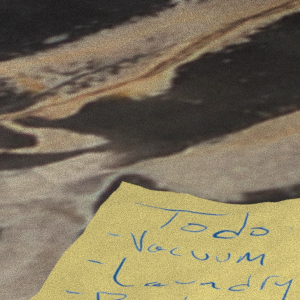 Todo
- Vacuum
- Laundry